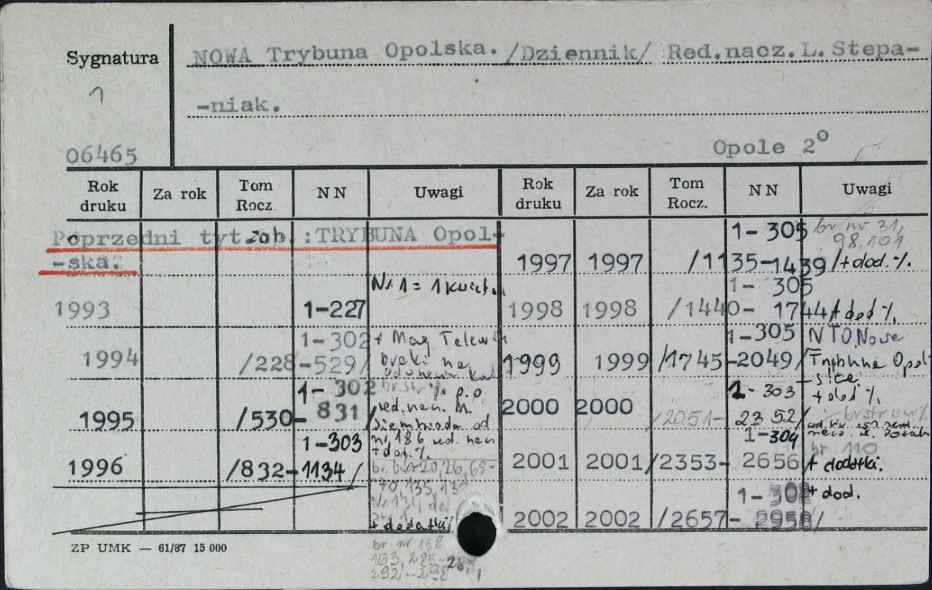 Sygnatura
NOWA Trybuna Opolska. /Dziennik/ Red.nacz.L.Stepa-
-niak.
06465
Opole 2°
Rok druku Za rok Tom Rocz. NN Uwagi Rok druku Za rok Tom Rocz. NN Uwagi
Poprzedni tyt. zob.:TRYBUNA Opol-
-ska.
1993 1-227 Nr 1 = 1 kwiet.
1994 1-302 /228-529/ + Mag Telew
braki na
1995 1-302 /530-831/ br. str. % p.o.
red. nacz. M.
od
nr 186 red. nacz
+ dod. %
1996 1-303 /832-1134/ br. nr 20,26,65-
70,135,13
+ dodatki
br nr 158
1997 1997 1-305 /1135-1439/ br. nr 31,
98.101
+ dod. %
1998 1998 1-305 /1440-1744/ + dod %
1999 1999 1-305 /1745-2049/ NTO, Nowa
Trybuna Opol
2000 2000 1-303 /2051-2352/ + dod %
2001 2001 1-304 /2353-2656/ br 110
+ dodatki.
2002 2002 1-302 /2657-2958/ + dod.
ZP UMK — 61/87 15 000